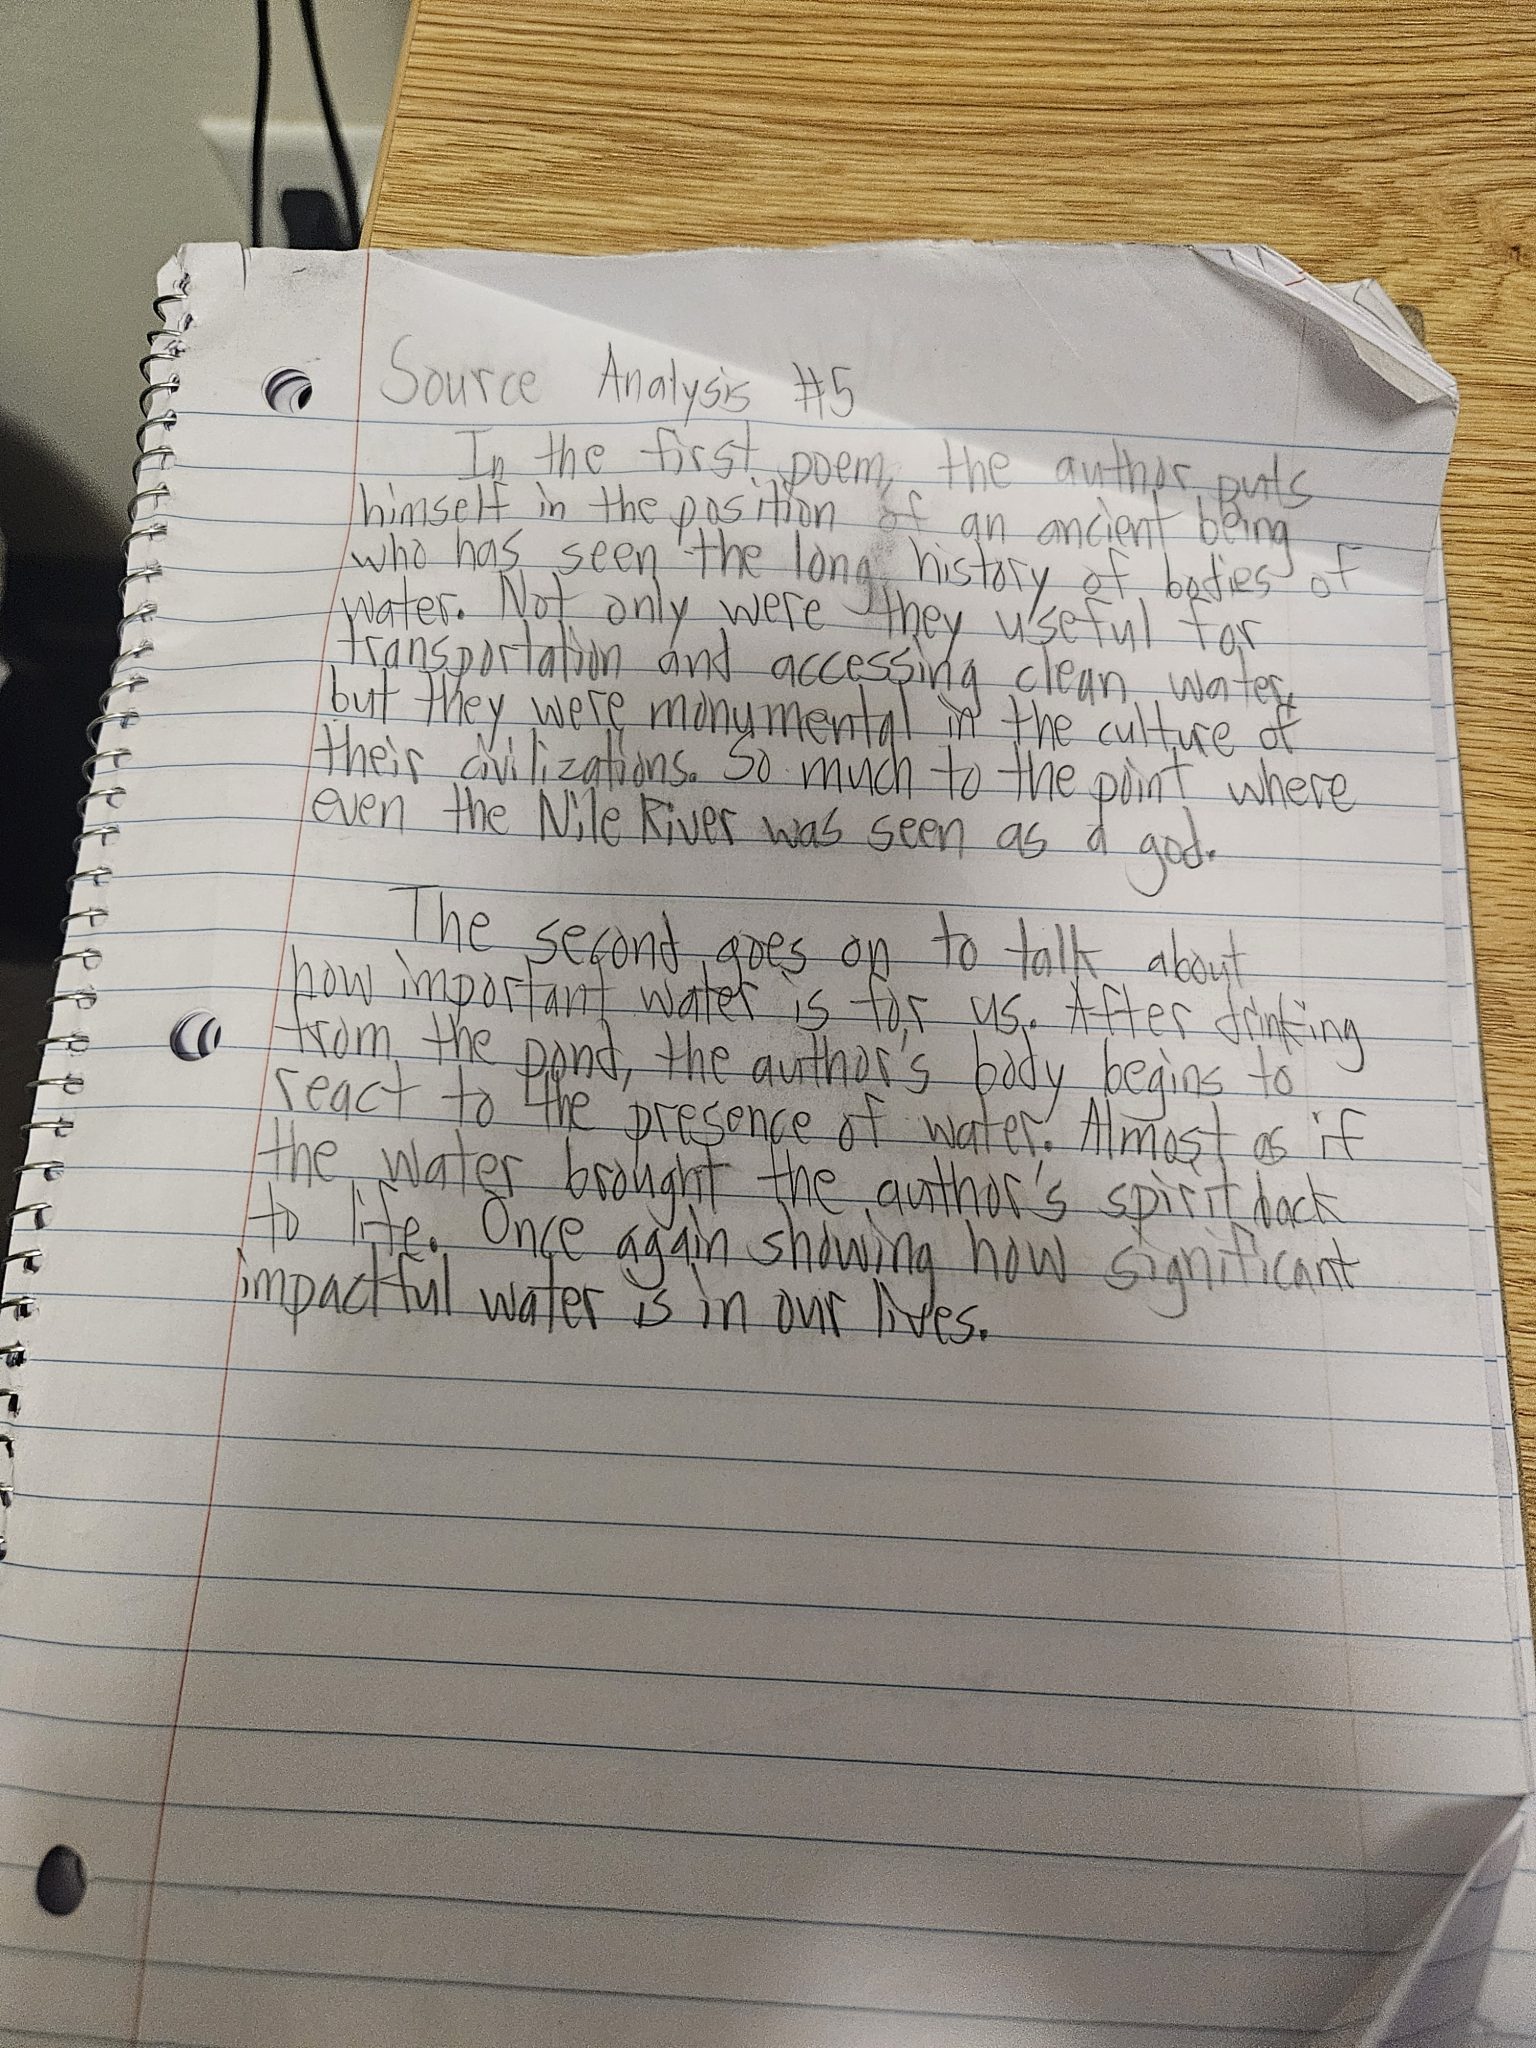 Source Analysis #5
In the first poem, the author puts
himself in the position of an ancient being
who has seen the long history of bodies of
water. Not only were they useful for
transportation and accessing clean water,
but they were monumental in the culture of
their civilizations. So much to the point where
even the Nile River was seen as a god.
The second goes on to talk about
how important water is for us. After drinking
from the pond, the author's body begins to
react to the presence of water. Almost as if
the water brought the author's spirit back
to life. Once again showing how significant
impactful water is in our lives.